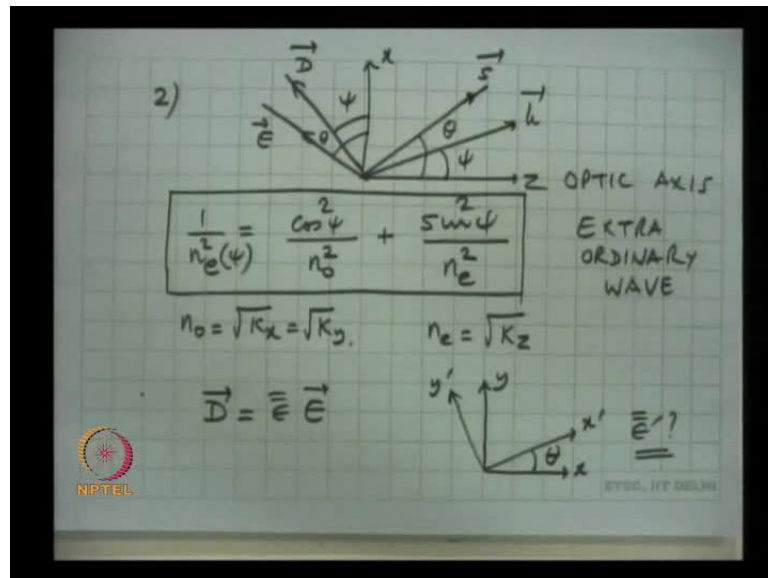 2)
D⃗ ψ x s⃗
E⃗ θ θ k⃗
ψ
z OPTIC AXIS
1/n_e²(ψ) = cos²ψ/n_o² + sin²ψ/n_e²
EXTRA
ORDINARY
WAVE
n_o = √K_x = √K_y. n_e = √K_z
D⃗ = ε̿ E⃗
y' y x' θ x
ε̿'?
NPTEL
ETSC, IIT DELHI